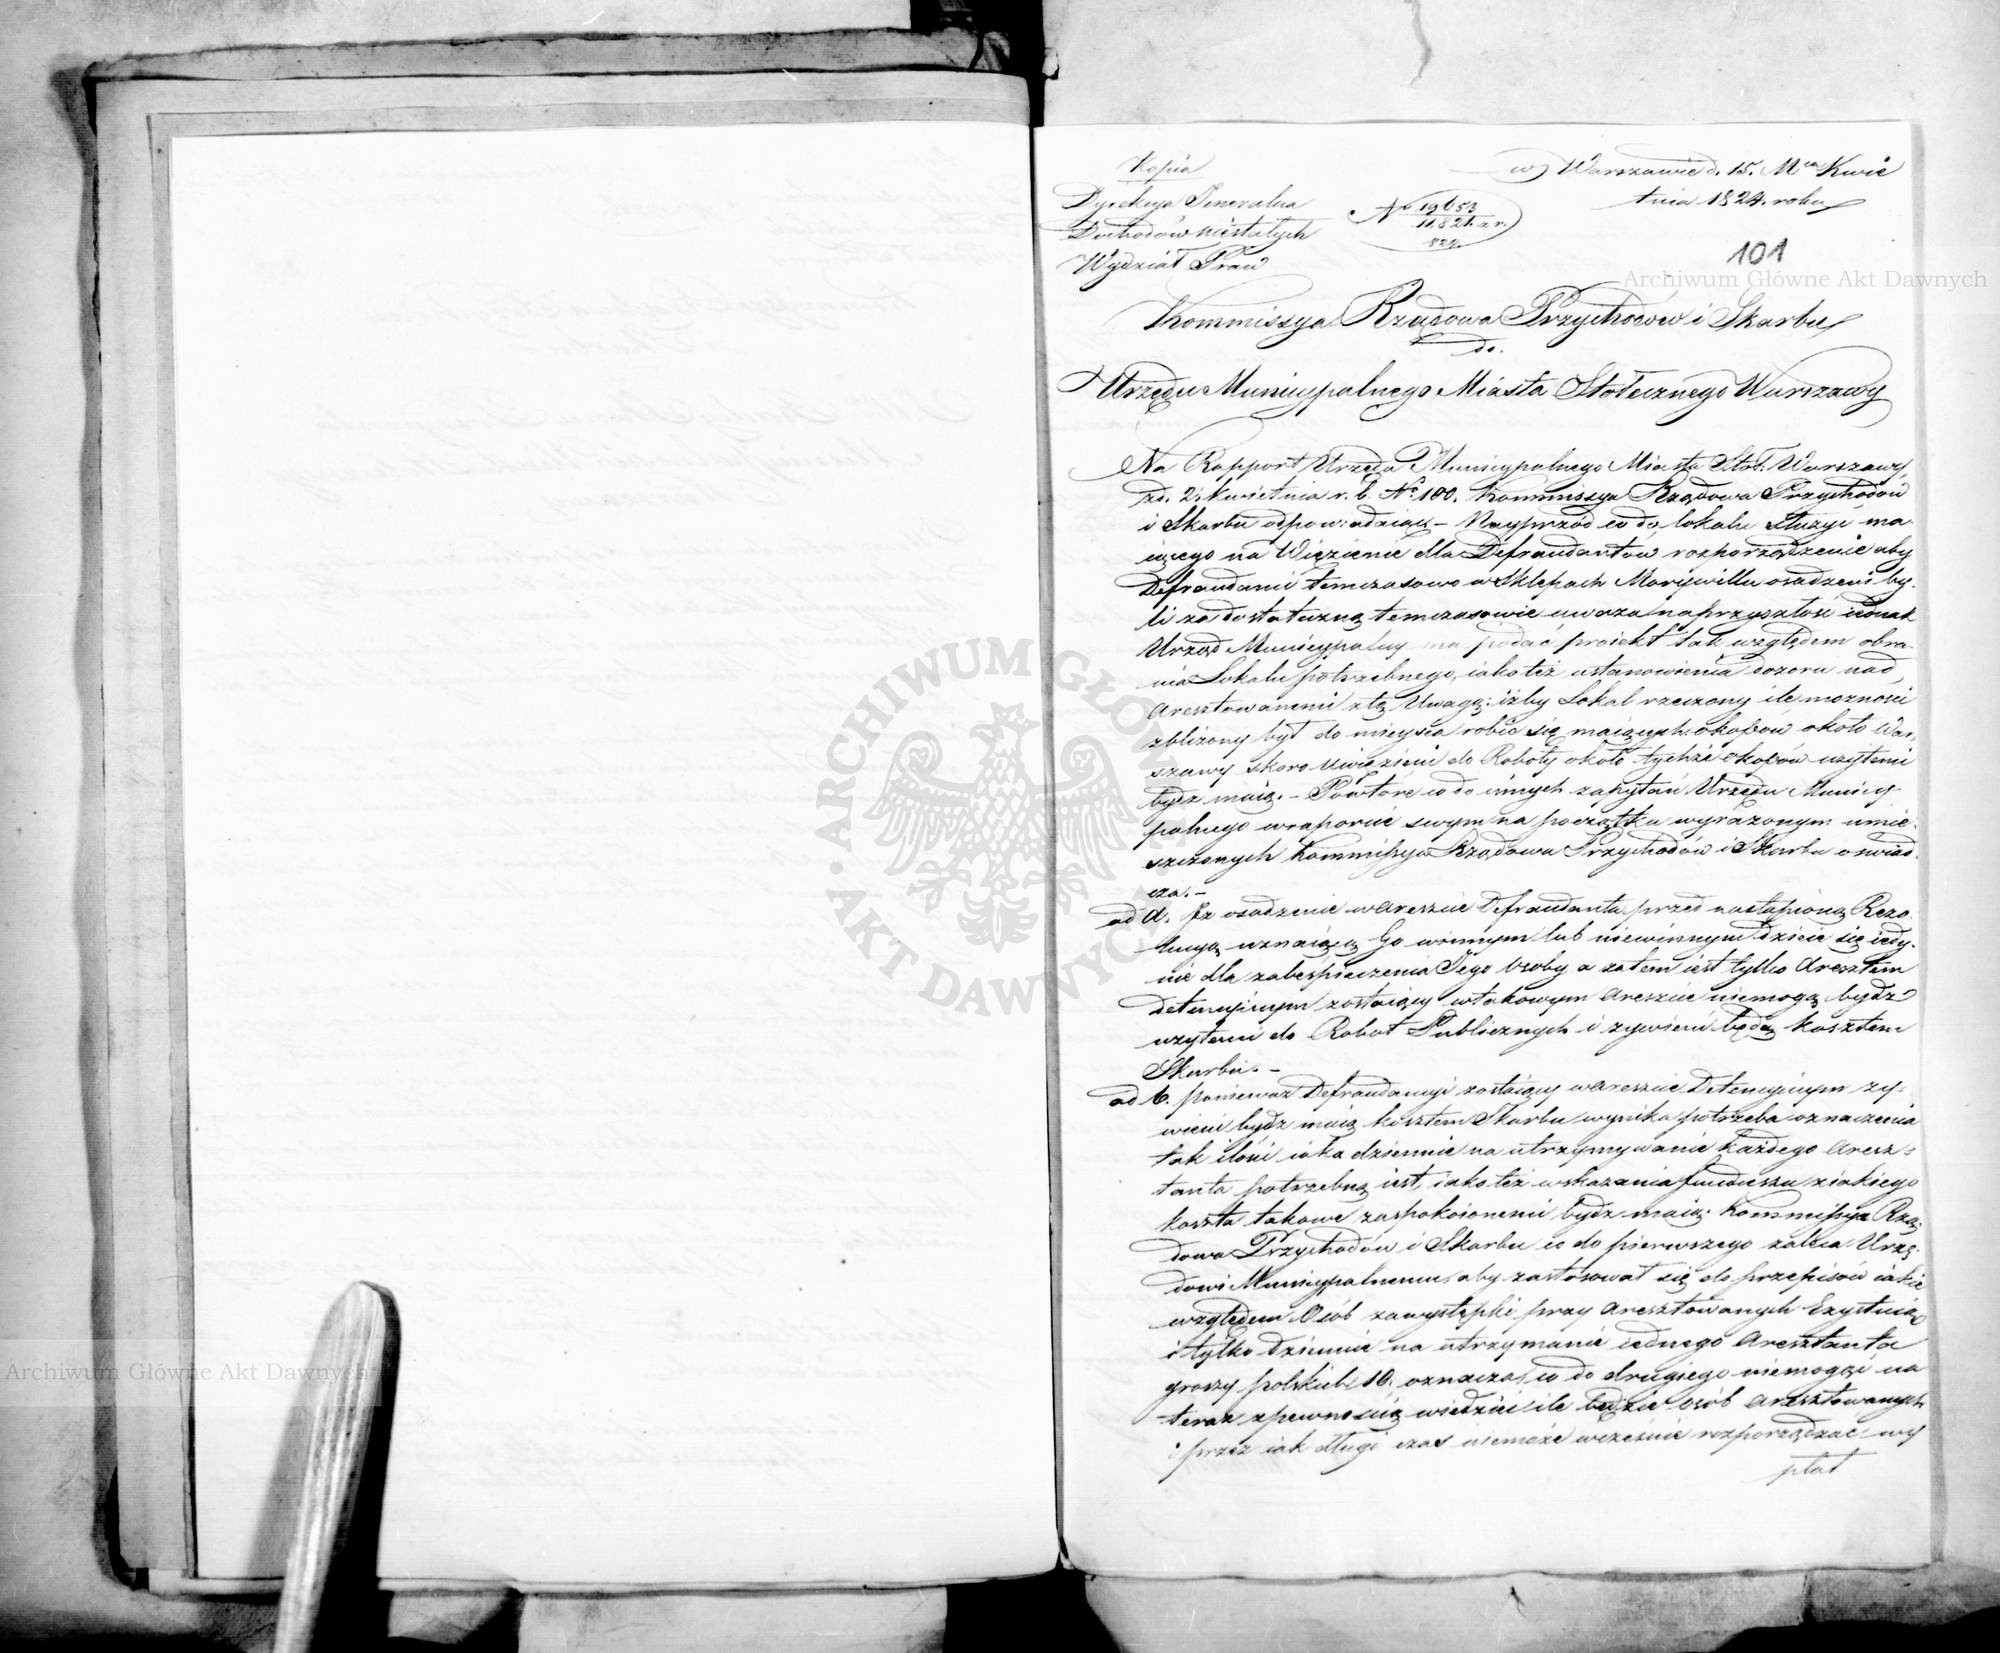 Kopia
w Warszawie d. 15. Mca Kwie
tnia 1824. roku
Dyrekcya Generalna
Dochodów niestałych
Wydział Praw
No 19653
11,821. a r.
824.
101
Kommissya Rządowa Przychodów i Skarbu
do.
Urzędu Municypalnego Miasta Stołecznego Warszawy
Na Rapport Urzędu Municypalnego Miasta Stoł. Warszawy
zd. 2. kwietnia r. b. No 100. Kommissya Rządowa Przychodów
i Skarbu odpowiadaiąc – Nayprzód co do, lokalu służyć ma-
iącego na Więzienie dla Defraudantów, rozporządzenie aby
Defraudanci temczasowo w Sklepach Marywillu osadzeni by-
li za dostateczną temczasowie uważa, na przyszłość iednak
Urząd Municypalny ma podać proiekt tak względem obra-
nia Lokalu potrzebnego, iako też ustanowienia dozoru nad
Aresztowanemi z tą Uwagą: iżby Lokal rzeczony ile możności
zbliżony był do mieysca robić się maiących okopów około War-
szawy skoro Uwięzieni do Roboty około tychże okopów użytemi
bydz maią. – Powtóre co do innych zapytań Urzędu Municy-
palnego w raporcie swym na początku wyrażonym umie-
szczonych Kommissya Rządowa Przychodów i Skarbu oświad-
cza. –
ad a. Iż osadzenie w areszcie Defraudanta przed nastąpioną Rezo-
lucyą uznaiącą Go winnym lub niewinnym dzieie się iedy-
nie dla zabespieczenia Jego Osoby a zatem iest tylko Aresztem
Detencyinym zostaiący w takowym Areszcie niemogą bydz
użytemi do Robot Publicznych i żywieni będą kosztem
Skarbu. –
ad b. ponieważ Defraudancyi zostaiący w areszcie Detencyinym ży-
wieni bydz maią kosztem Skarbu, wynika potrzeba oznaczenia
tak ilości iaka dziennie na utrzymywanie każdego Aresz-
tanta potrzebną iest, iako też wskazania funduszu z iakiego
koszta takowe zaspokoionemi bydz maią. Kommissya Rzą-
dowa Przychodów i Skarbu co do pierwszego zaleca Urzę-
dowi Municypalnemu, aby zastosował się do przepisów iakie
względem Osób za występki przy Aresztowanych Exystuią
i tylko dziennie na utrzymanie iednego Aresztanta
groszy polskich 10. oznacza, co do drugiego niemogąc na
teraz z pewnością wiedzieć ile będzie osób Aresztowanych
i przez iak długi czas niemoże wcześnie rozporządzać wy
płat
Archiwum Główne Akt Dawnych
Archiwum Główne Akt Dawnych
ARCHIWUM GŁÓWNE AKT DAWNYCH